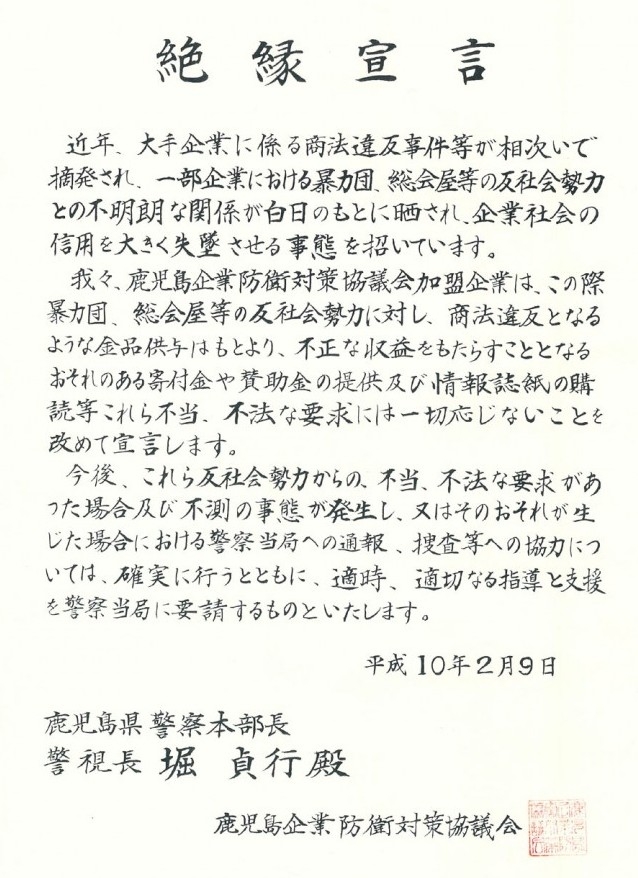 絶縁宣言
近年、大手企業に係る商法違反事件等が相次いで
摘発され、一部企業における暴力団、総会屋等の反社会勢力
との不明朗な関係が白日のもとに晒され、企業社会の
信用を大きく失墜させる事態を招いています。
我々、鹿児島企業防衛対策協議会加盟企業は、この際
暴力団、総会屋等の反社会勢力に対し、商法違反となる
ような金品供与はもとより、不正な収益をもたらすこととなる
おそれのある寄付金や賛助金の提供及び情報誌紙の購
読等これら不当、不法な要求には一切応じないことを
改めて宣言します。
今後、これら反社会勢力からの、不当、不法な要求があ
った場合及び不測の事態が発生し、又はそのおそれが生
じた場合における警察当局への通報、捜査等への協力につ
いては、確実に行うとともに、適時、適切なる指導と支援
を警察当局に要請するものといたします。
平成10年2月9日
鹿児島県警察本部長
警視長 堀 貞行殿
鹿児島企業防衛対策協議会